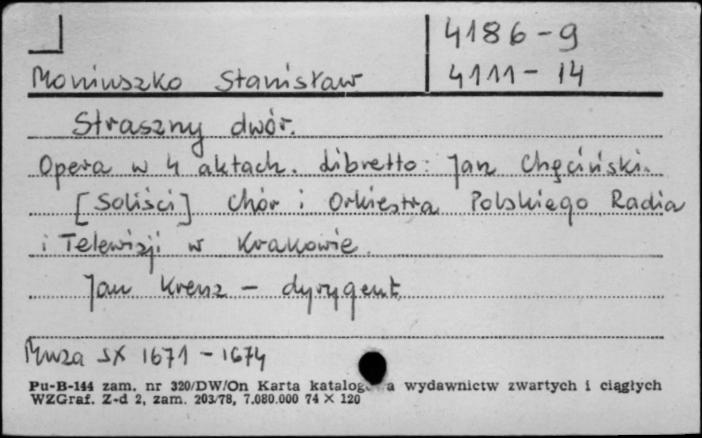 4186-9
Moniuszko Stanisław 4111-14
Straszny dwór.
Opera w 4 aktach. Libretto: Jan Chęciński.
[Soliści] Chór i Orkiestra Polskiego Radia
i Telewizji w Krakowie.
Jan Krenz - dyrygent
Muza SX 1671-1674
Pu-B-144 zam. nr 320/DW/On Karta wydawnictw zwartych i ciągłych
WZGraf. Z-d 2, zam. 203/78, 7.080.000 74 X 120